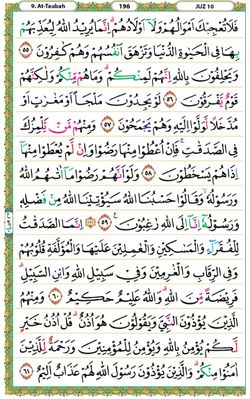 9. At-Taubah 196 JUZ 10
فَلَا تُعْجِبْكَ أَمْوَالُهُمْ وَلَآ أَوْلَادُهُمْ ۚ إِنَّمَا يُرِيدُ اللَّهُ لِيُعَذِّبَهُمْ
بِهَا فِي الْحَيَاةِ الدُّنْيَا وَتَزْهَقَ أَنْفُسُهُمْ وَهُمْ كَافِرُونَ ۝٥٥
وَيَحْلِفُونَ بِاللَّهِ إِنَّهُمْ لَمِنْكُمْ ۗ وَمَا هُمْ مِنْكُمْ وَلَٰكِنَّهُمْ
قَوْمٌ يَفْرَقُونَ ۝٥٦ لَوْ يَجِدُونَ مَلْجَأً أَوْ مَغَارَاتٍ أَوْ
مُدَّخَلًا لَوَلَّوْا إِلَيْهِ وَهُمْ يَجْمَحُونَ ۝٥٧ وَمِنْهُمْ مَنْ يَلْمِزُكَ
فِي الصَّدَقَاتِ ۚ فَإِنْ أُعْطُوا مِنْهَا رَضُوا وَإِنْ لَمْ يُعْطَوْا مِنْهَآ
إِذَا هُمْ يَسْخَطُونَ ۝٥٨ وَلَوْ أَنَّهُمْ رَضُوا مَآ آتَاهُمُ اللَّهُ
وَرَسُولُهُ ۙ وَقَالُوا حَسْبُنَا اللَّهُ سَيُؤْتِينَا اللَّهُ مِنْ فَضْلِهِ
وَرَسُولُهُ ۙ إِنَّآ إِلَى اللَّهِ رَاغِبُونَ ۝٥٩ إِنَّمَا الصَّدَقَاتُ
لِلْفُقَرَآءِ وَالْمَسَاكِينِ وَالْعَامِلِينَ عَلَيْهَا وَالْمُؤَلَّفَةِ قُلُوبُهُمْ
وَفِي الرِّقَابِ وَالْغَارِمِينَ وَفِي سَبِيلِ اللَّهِ وَابْنِ السَّبِيلِ ۖ
فَرِيضَةً مِنَ اللَّهِ ۗ وَاللَّهُ عَلِيمٌ حَكِيمٌ ۝٦٠ وَمِنْهُمُ
الَّذِينَ يُؤْذُونَ النَّبِيَّ وَيَقُولُونَ هُوَ أُذُنٌ ۚ قُلْ أُذُنُ خَيْرٍ
لَكُمْ يُؤْمِنُ بِاللَّهِ وَيُؤْمِنُ لِلْمُؤْمِنِينَ وَرَحْمَةٌ لِلَّذِينَ
آمَنُوا مِنْكُمْ ۚ وَالَّذِينَ يُؤْذُونَ رَسُولَ اللَّهِ لَهُمْ عَذَابٌ أَلِيمٌ ۝٦١